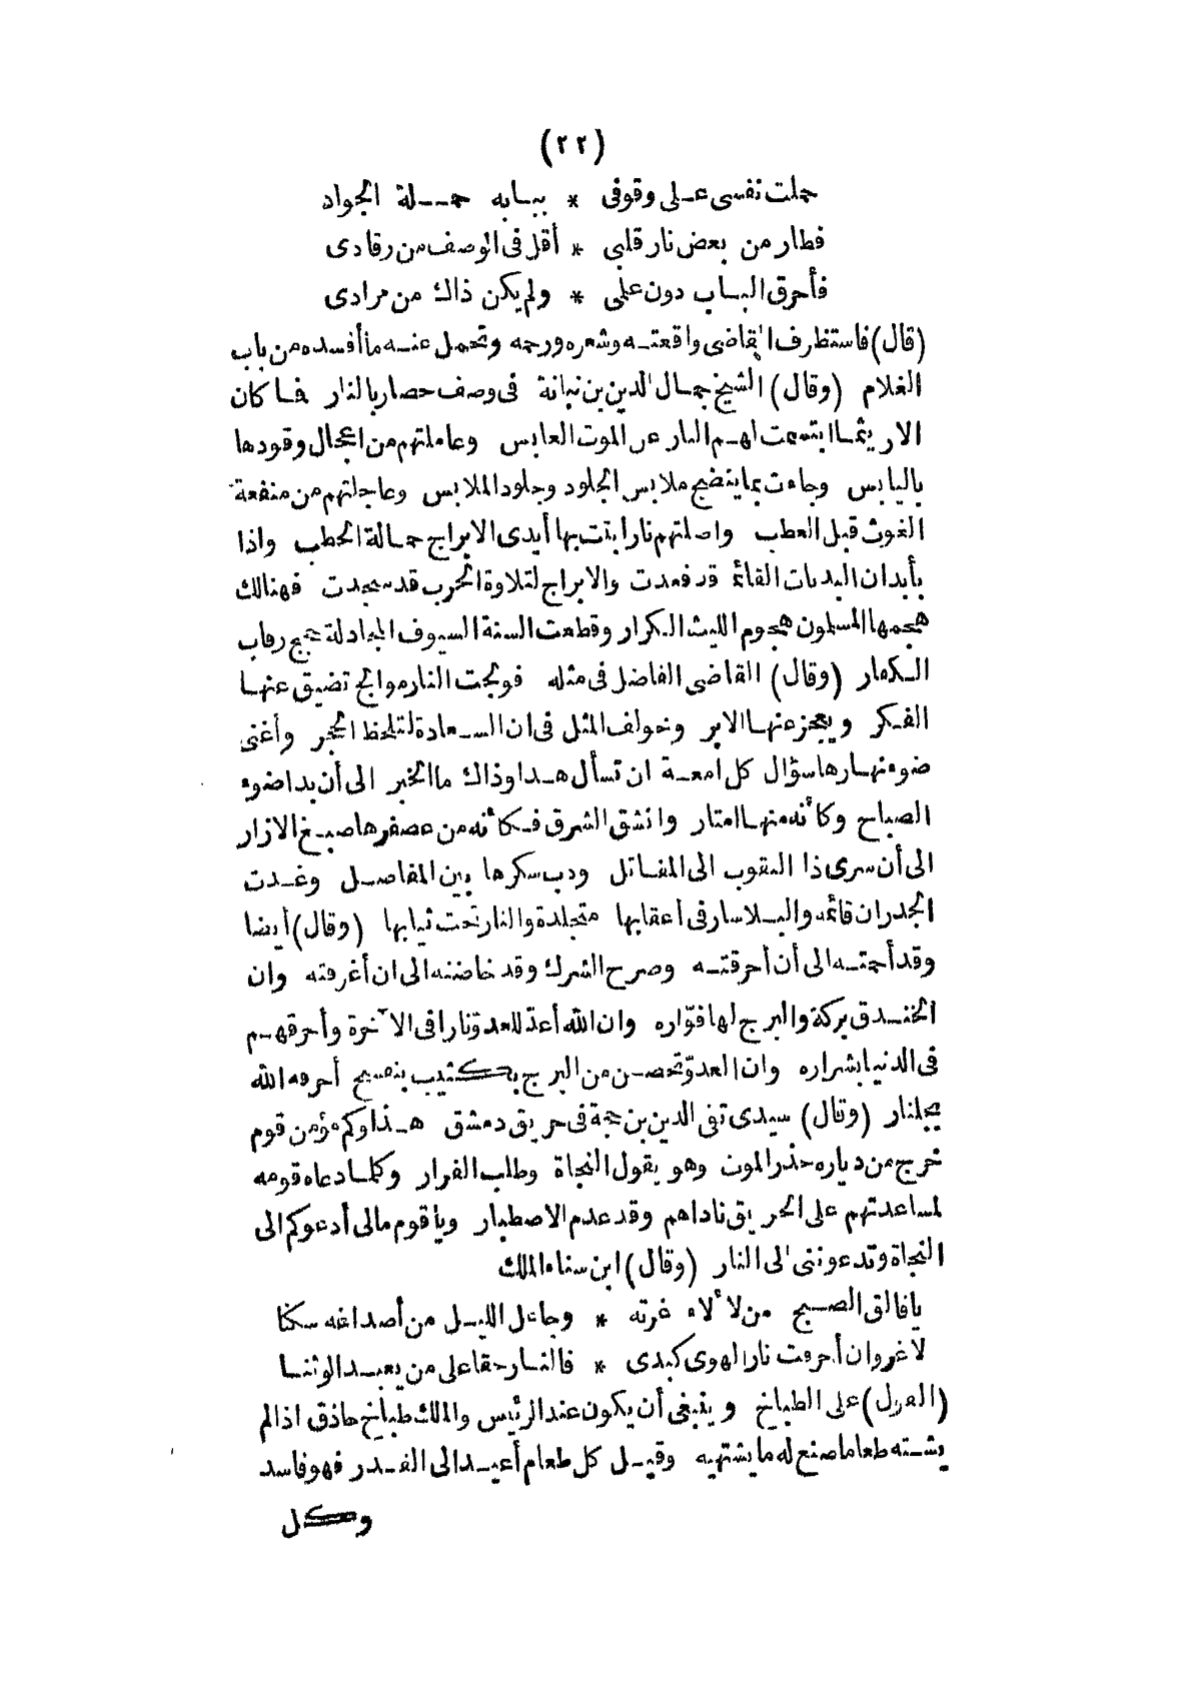 (٢٢)
حملت نفسى عـلى وقوفى * ببـابه حمـــلة الجواد
فطار من بعض نار قلبى * أقل فى الوصف من زنادى
فأحرق البـاب دون علمى * ولم يكن ذاك من مرادى
(قال) فاستظرف القاضى واقعتـه وشعره ورحمه وتحمل عنـه ما أفسده من باب
الغلام (وقال) الشيخ جمـال الدين بن نباتة فى وصف حصار بالنار فما كان
الا ريثمـا ابتسمت لهـم النار عن الموت العابس وعاملتهم من اعجال وقودها
باليابس وجاءت بما ينضج ملابس الجلود وجلود الملابس وعاجلتهم من منفعة
الغوث قبل العطب وأصلتهم نارا باتت بها أيدى الابراج حمـالة الحطب واذا
بأبدان البدنات القائمة قد قعدت والابراج لتلاوة الحرب قد سجدت فهنالك
هجمها المسلمون هجوم الليث الـكرار وقطعت السنة السيوف المجادلة حجج رقاب
الـكفار (وقال) القاضى الفاضل فى مثله فولجت النار موالج تضيق عنهـا
الفـكر ويعجز عنهـا الابر وخولف المثل فى ان السـعادة لتلحظ الحجر وأغنى
ضوء نهـارها سؤال كل أمعـة ان تسأل هـذا وذاك ما الخبر الى أن بدا ضوء
الصباح وكأنه منهـا امتار وانشق الشرق فـكأنه من عصفرها صبـغ الازار
الى أن سرى ذا النقوب الى المقـاتل ودب سكرها بين المفاصـل وغـدت
الجدران قائمة والبـلا سار فى أعقابها متجلدة والنار تحت ثيابها (وقال) أيضا
وقد أجمتـه الى أن أحرقتـه وصرح الشرك وقد خاضته الى ان أغرقته وان
الخنـدق بركة والبرج لها فوّاره وان الله أعدّ للعدوّ نارا فى الآخرة وأحرقهـم
فى الدنيا بشراره وان العدوّ تحصـن من البرج بحكثيب بنفسج أحرقه الله
بجلنار (وقال) سيدى تقى الدين بن حجة فى حريق دمشق هـذا وكم مؤمن قوم
خرج من دياره حذر الموت وهو يقول النجاة وطلب الفرار وكلمـا دعاه قومه
لمساعدتهم على الحريق ناداهم وقد عدم الاصطبار ويا قوم مالى أدعوكم الى
النجاة وتدعوننى الى النار (وقال) ابن سناء الملك
يا فالق الصـبح من لألاء غرته * وجاعل الليـل من أصداغه سكنا
لا غرو ان أحرقت نار الهوى كبدى * فالنـار حقا على من يعبـد الوثنـا
(القول) على الطباخ وينبغى أن يكون عند الرئيس والملك طباخ حاذق اذا لم
يشـته طعاما صنع له ما يشتهيه وقيـل كل طعام أعيـد الى القـدر فهو فاسد
وكل